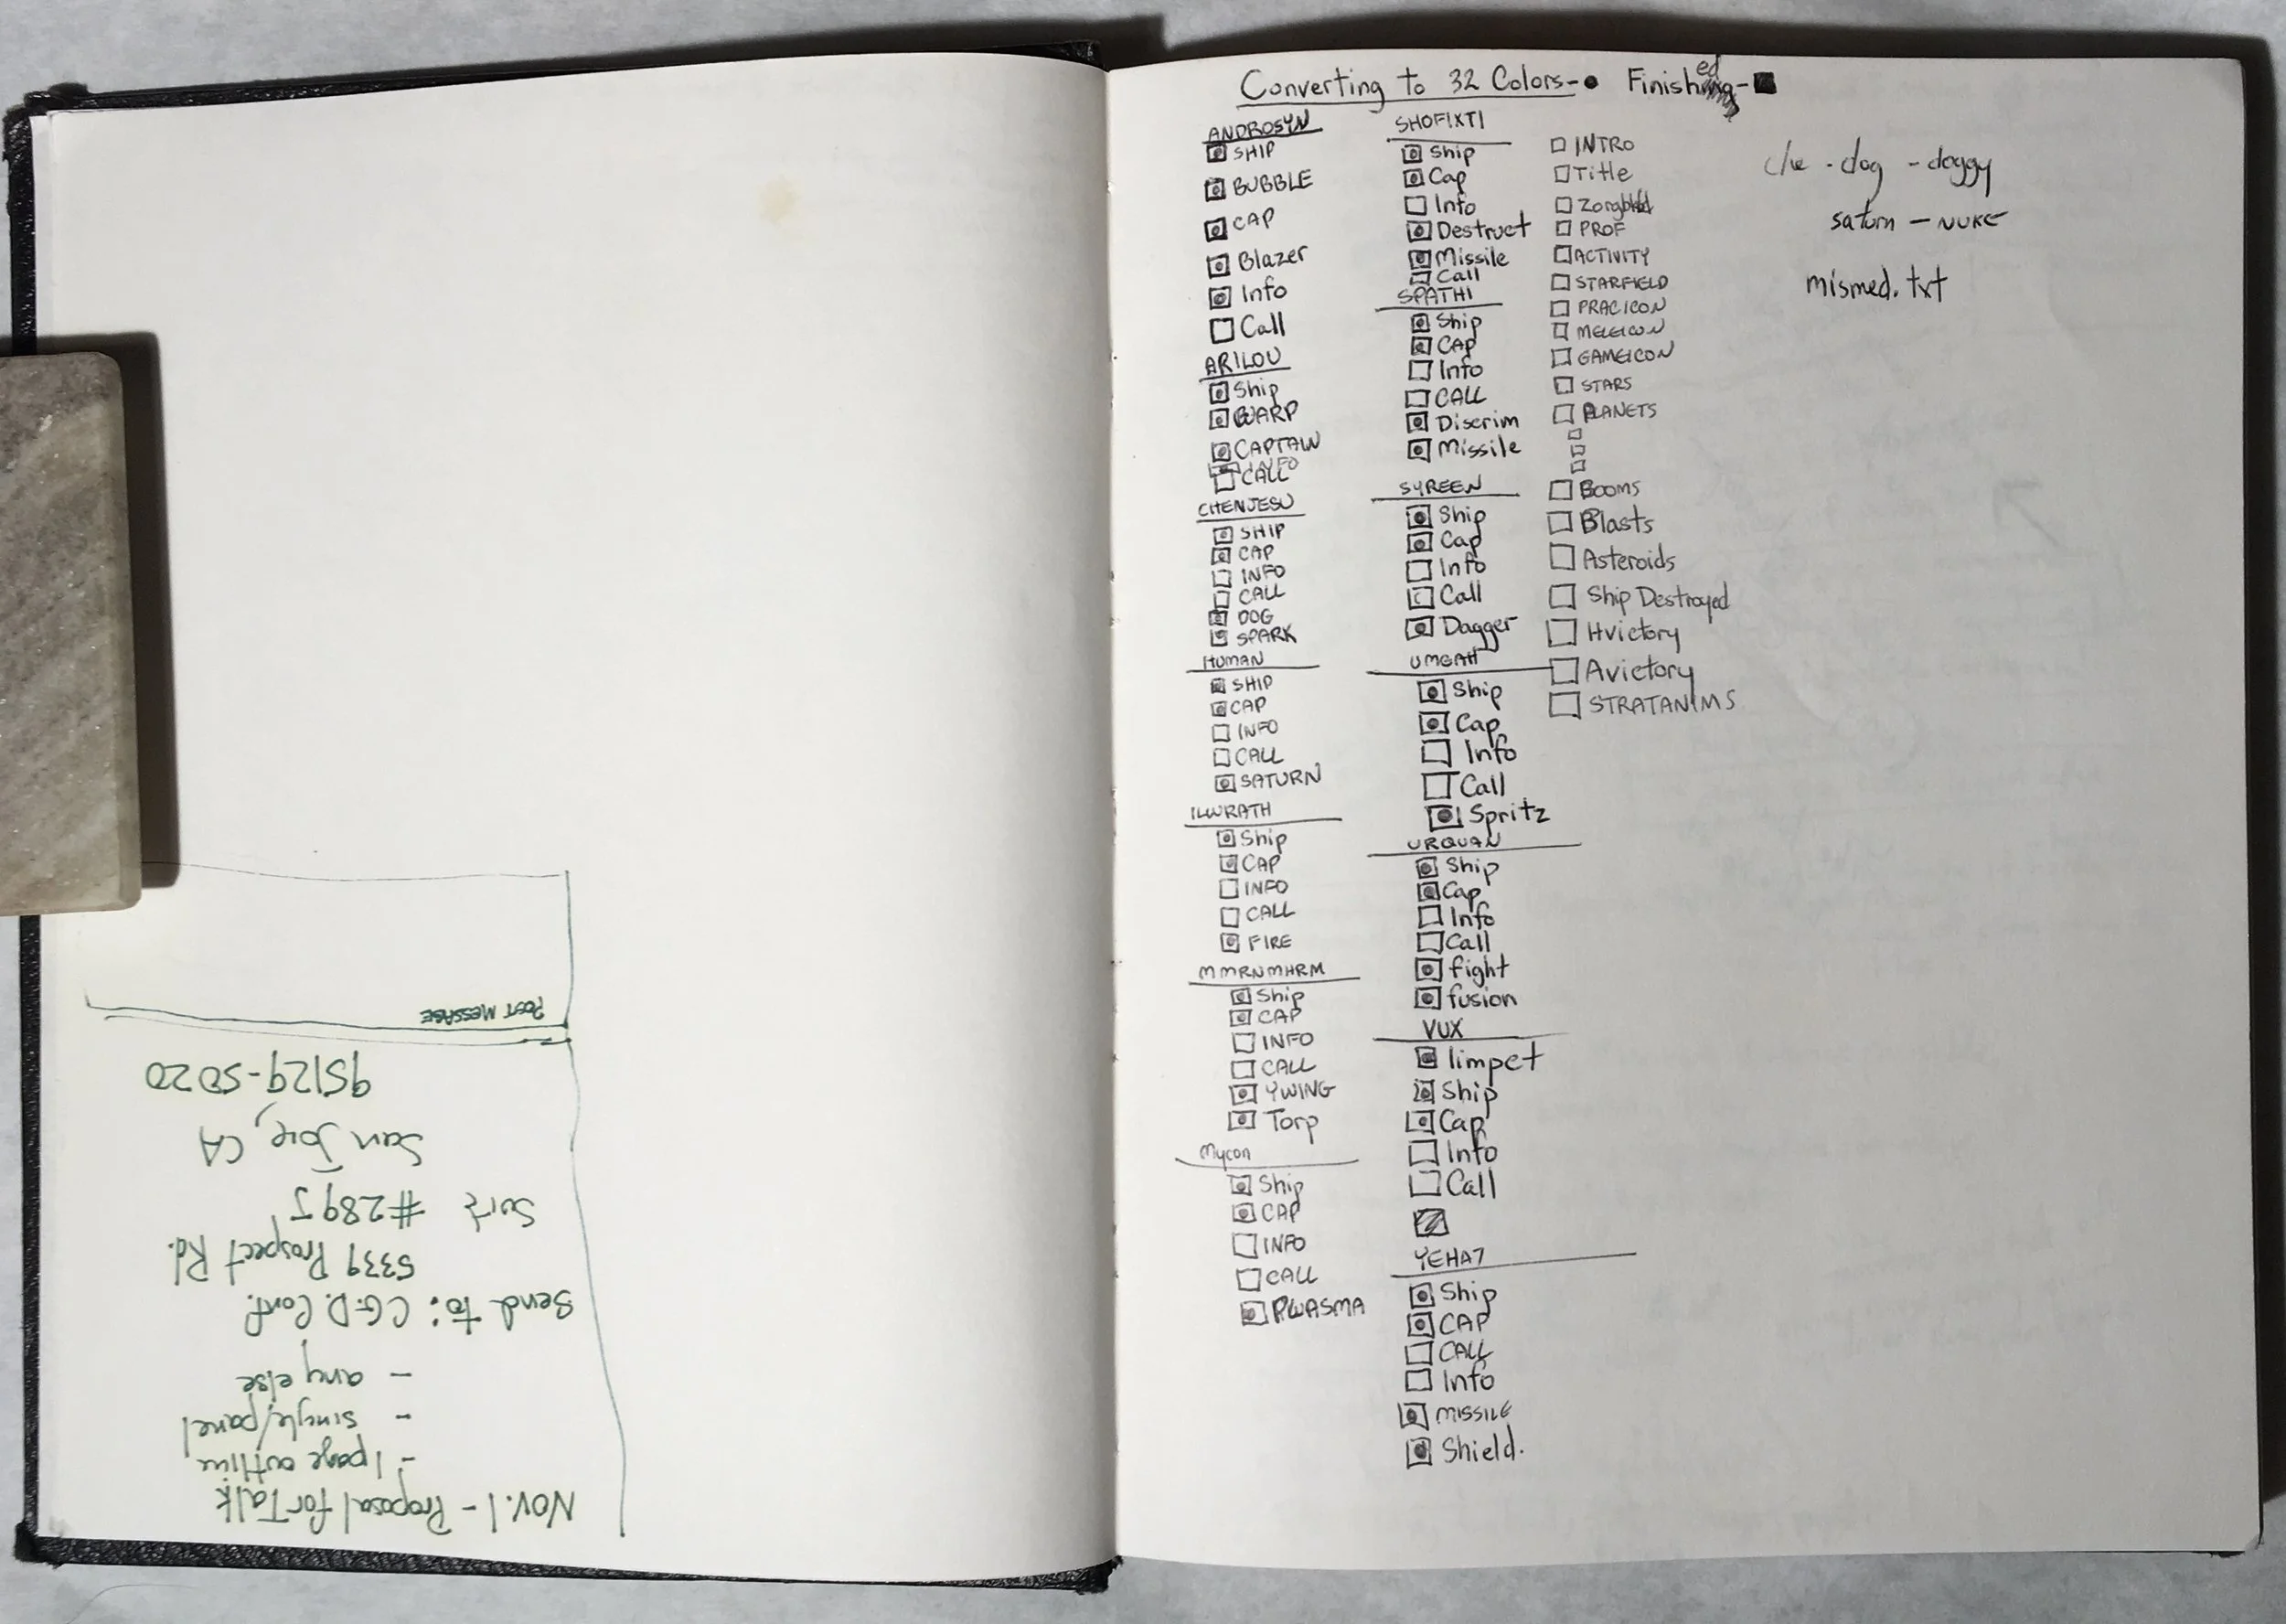 Nov. 1 - Proposal for Talk
- 1 page outline
- single/panel
- any else
Send to: C.G.D. Conf.
5339 Prospect Rd.
Suite #289
San Jose, CA
95129-5020
POST MESSAGE
Converting to 32 Colors-● Finished-■
ANDROSYN
SHIP
BUBBLE
CAP
Blazer
Info
Call
ARILOU
Ship
WARP
CAPTAIN
INFO
CALL
CHENJESU
SHIP
CAP
INFO
CALL
DOG
SPARK
HUMAN
SHIP
CAP
INFO
CALL
SATURN
ILWRATH
Ship
CAP
INFO
CALL
FIRE
MMRNMHRM
Ship
CAP
INFO
CALL
YWING
Torp
Mycon
Ship
CAP
INFO
CALL
PLASMA
SHOFIXTI
Ship
Cap
Info
Destruct
Missile
Call
SPATHI
Ship
CAP
Info
CALL
Discrim
Missile
SYREEN
Ship
Cap
Info
Call
Dagger
UMGAH
Ship
Cap
Info
Call
Spritz
URQUAN
Ship
Cap
Info
Call
fight
fusion
VUX
limpet
Ship
Cap
Info
Call
YEHAT
Ship
CAP
CALL
Info
MISSILE
Shield.
INTRO
Title
PROF
ACTIVITY
STARFIELD
PRACICON
MELEICON
GAMEICON
STARS
PLANETS
Booms
Blasts
Asteroids
Ship Destroyed
Hvictory
Avictory
STRATANIMS
che - dog - doggy
saturn - NUKE
mismed.txt